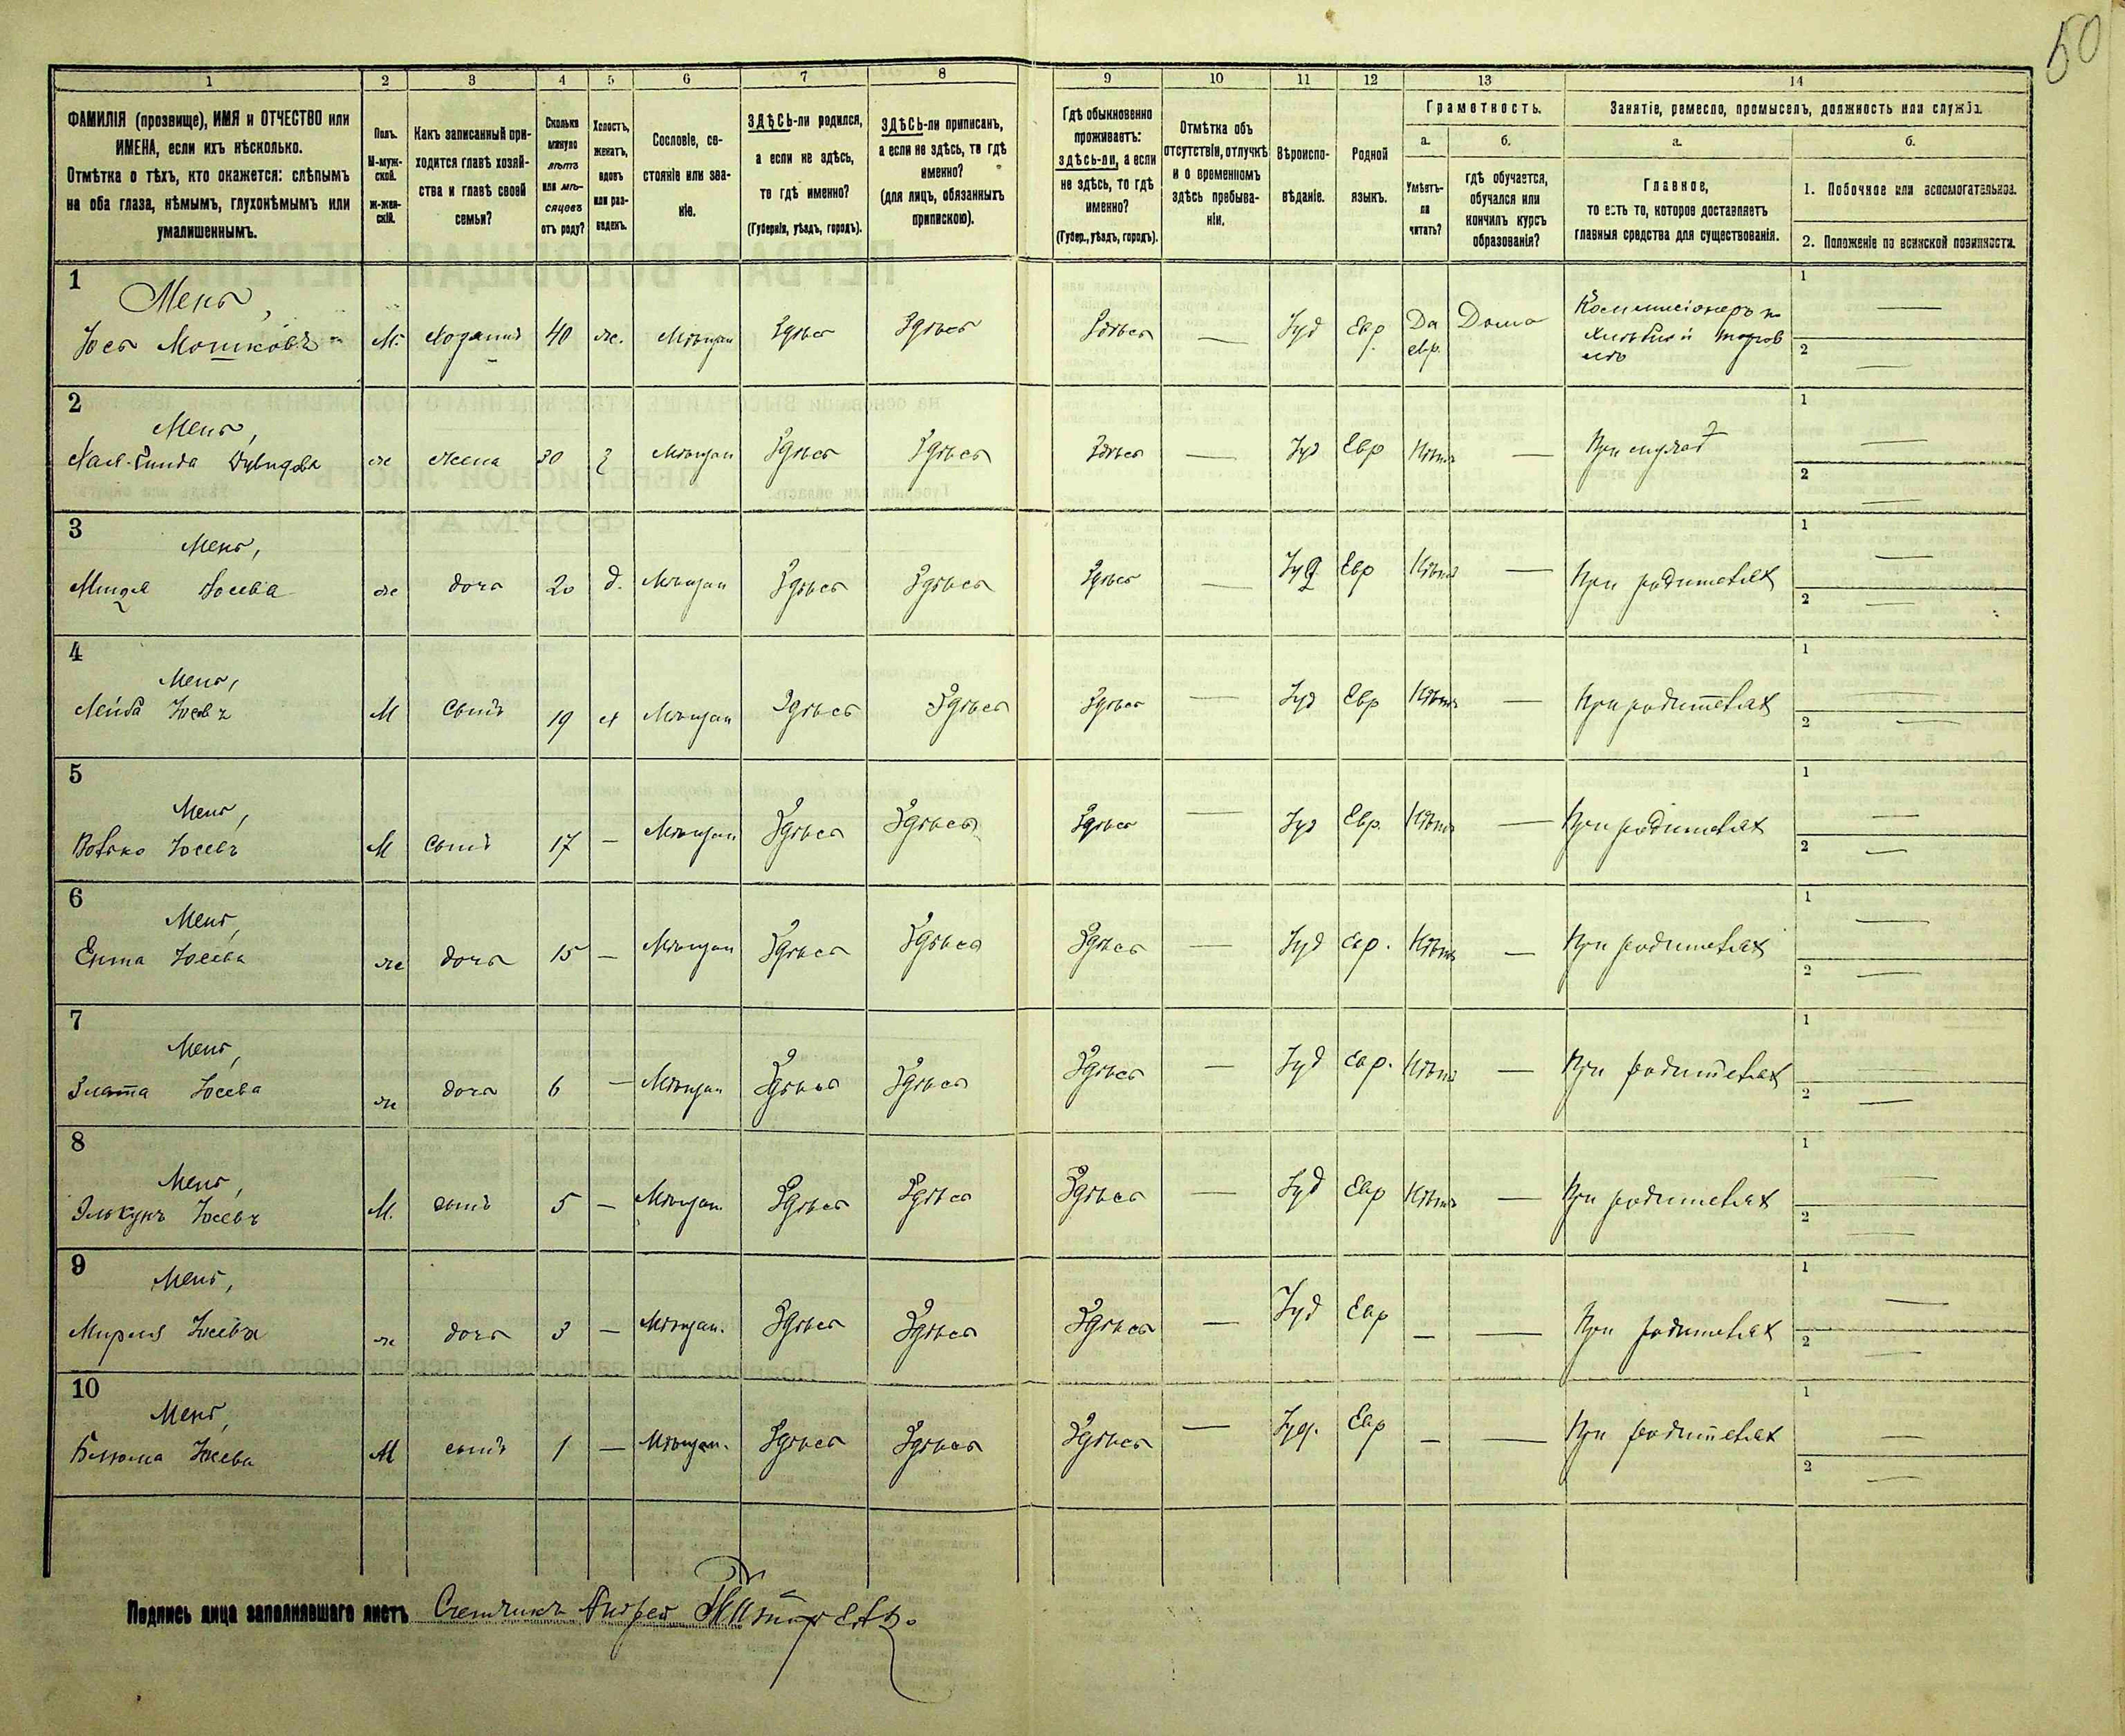 50
1 2 3 4 5 6 7 8 9 10 11 12 13 14
ФАМИЛІЯ (прозвище), ИМЯ и ОТЧЕСТВО или
ИМЕНА, если ихъ нѣсколько.
Отмѣтка о тѣхъ, кто окажется: слѣпымъ
на оба глаза, нѣмымъ, глухонѣмымъ или
умалишеннымъ.
Полъ.
М-муж-
ской.
ж-жен-
скій.
Какъ записанный при-
ходится главѣ хозяй-
ства и главѣ своей
семьи?
Сколько
минуло
лѣтъ
или мѣ-
сяцевъ
отъ роду?
Холостъ,
женатъ,
вдовъ
или раз-
веденъ.
Сословіе, со-
стояніе или зва-
ніе.
ЗДѢСЬ-ли родился,
а если не здѣсь,
то гдѣ именно?
(Губернія, уѣздъ, городъ).
ЗДѢСЬ-ли приписанъ,
а если не здѣсь, то гдѣ
именно?
(для лицъ, обязанныхъ
припискою).
Гдѣ обыкновенно
проживаетъ:
здѣсь-ли, а если
не здѣсь, то гдѣ
именно?
(Губер., уѣздъ, городъ).
Отмѣтка объ
отсутствіи, отлучкѣ
и о временномъ
здѣсь пребыва-
ніи.
Вѣроиспо-
вѣданіе.
Родной
языкъ.
Грамотность.
а.
Умѣетъ-
ли
читать?
б.
гдѣ обучается,
обучался или
кончилъ курсъ
образованія?
Занятіе, ремесло, промыселъ, должность или служба.
а.
Главное,
то есть то, которое доставляетъ
главныя средства для существованія.
б.
1. Побочное или вспомогательное.
2. Положеніе по воинской повинности.
1
Менъ,
Іосъ Мошковъ М. Хозяинъ 40 ж. Мѣщан Здѣсь Здѣсь Здѣсь — Іуд Евр. Да евр. Дома
1 —
2 —
2
Менъ,
ж жена 30 з Мѣщан Здѣсь Здѣсь Здѣсь — Іуд Евр Нѣтъ — При мужѣ
1 —
2 —
3
Менъ,
Іосева ж дочь 20 д. Мѣщан Здѣсь Здѣсь Здѣсь — Іуд Евр Нѣтъ — При родителях
1 —
2 —
4
Менъ,
Лейба Іосевъ М Сынъ 19 х Мѣщан Здѣсь Здѣсь Здѣсь — Іуд Евр Нѣтъ — При родителях
1 —
2 —
5
Менъ,
Волько Іосевъ М Сынъ 17 — Мѣщан Здѣсь Здѣсь Здѣсь — Іуд Евр. Нѣтъ — При родителях
1 —
2 —
6
Менъ,
Ента Іосева ж дочь 15 — Мѣщан Здѣсь Здѣсь Здѣсь — Іуд евр. Нѣтъ — При родителях
1 —
2 —
7
Менъ,
Злата Іосева ж дочь 6 — Мѣщан Здѣсь Здѣсь Здѣсь — Іуд евр. Нѣтъ — При родителях
1 —
2 —
8
Менъ,
Элькунъ Іосевъ М. сынъ 5 — Мѣщан. Здѣсь Здѣсь Здѣсь — Іуд Евр Нѣтъ — При родителях
1 —
2 —
9
Менъ,
Мирля Іосева ж дочь 3 — Мѣщан. Здѣсь Здѣсь Здѣсь — Іуд Евр — — При родителях
1 —
2 —
10
Менъ,
Іосевъ М сынъ 1 — Мѣщан. Здѣсь Здѣсь Здѣсь — Іуд. Евр — — При родителях
1 —
2 —
Подпись лица заполнявшаго листъ Счетчикъ Андрей